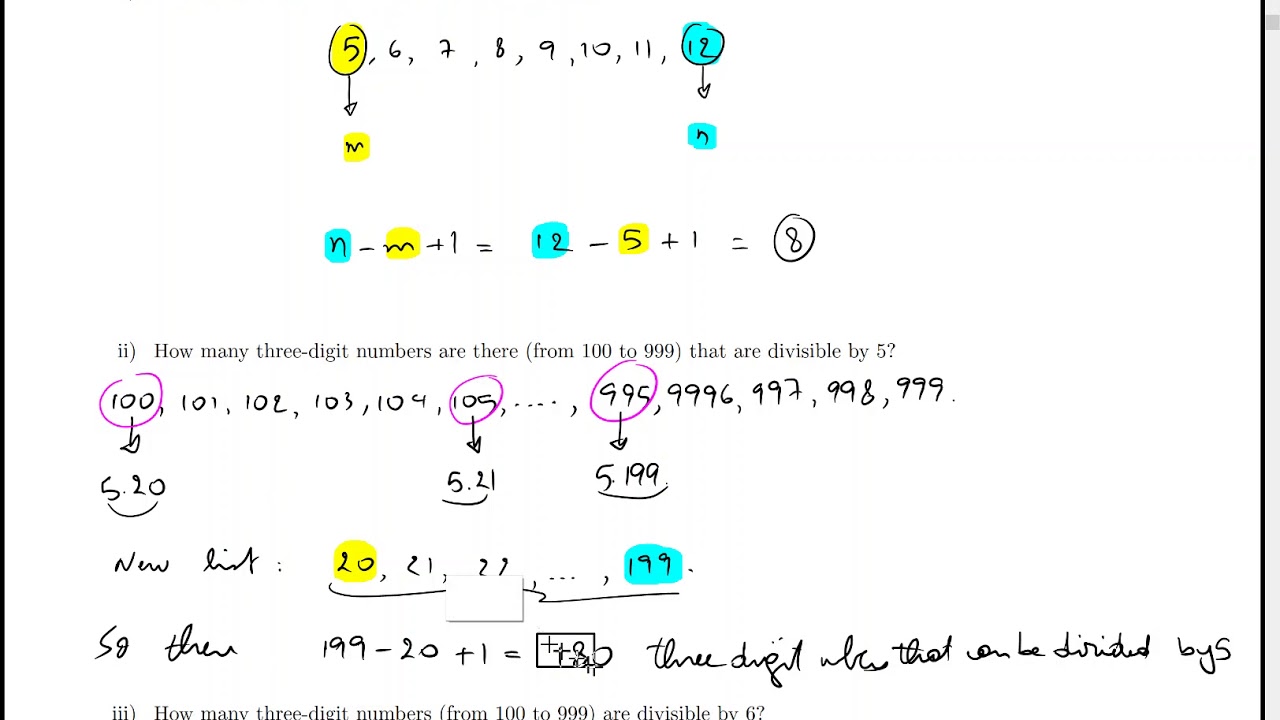 5, 6, 7, 8, 9, 10, 11, 12
m n
n - m + 1 = 12 - 5 + 1 = 8
ii) How many three-digit numbers are there (from 100 to 999) that are divisible by 5?
100, 101, 102, 103, 104, 105, ...., 995, 9996, 997, 998, 999.
5.20 5.21 5.199
New list: 20, 21, 22, ..., 199.
So there 199 - 20 + 1 = 180 three digit that can be divided by 5
iii) How many three-digit numbers (from 100 to 999) are divisible by 6?